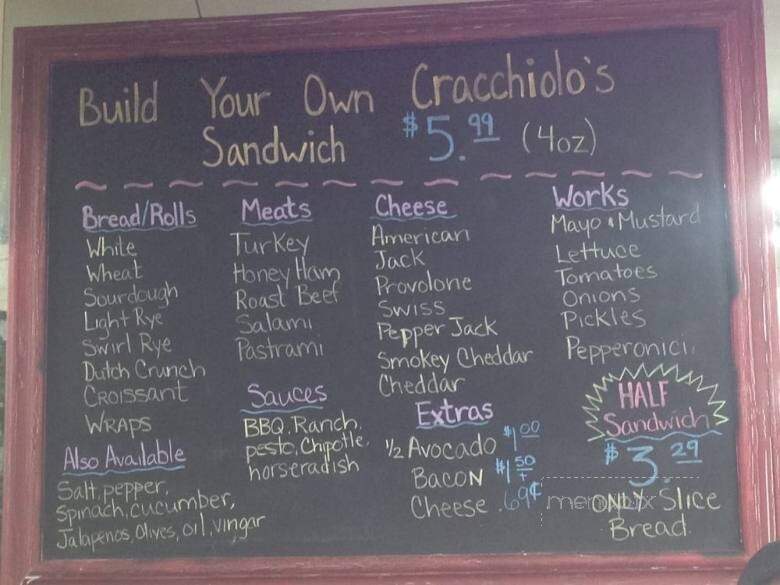 Build Your Own Cracchiolo's
Sandwich $5.99 (4oz)
Bread/Rolls
White
Wheat
Sourdough
Light Rye
Swirl Rye
Dutch Crunch
Croissant
Wraps
Also Available
Salt, pepper,
Spinach, cucumber,
Jalapenos, Olives, oil, vingar
Meats
Turkey
Honey Ham
Roast Beef
Salami
Pastrami
Sauces
BBQ, Ranch,
pesto, Chipotle,
horseradish
Cheese
American
Jack
Provolone
Swiss
Pepper Jack
Smokey Cheddar
Cheddar
Extras
1/2 Avocado $1.00
Bacon $1.50+
Cheese .69¢
Works
Mayo & Mustard
Lettuce
Tomatoes
Onions
Pickles
Pepperonici
HALF
Sandwich
$3.29
ONLY Slice
Bread